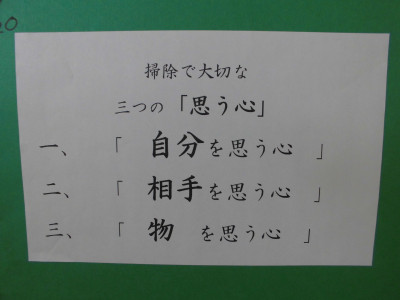 掃除で大切な
三つの「思う心」
一、「 自分を思う心 」
二、「 相手を思う心 」
三、「 物 を思う心 」